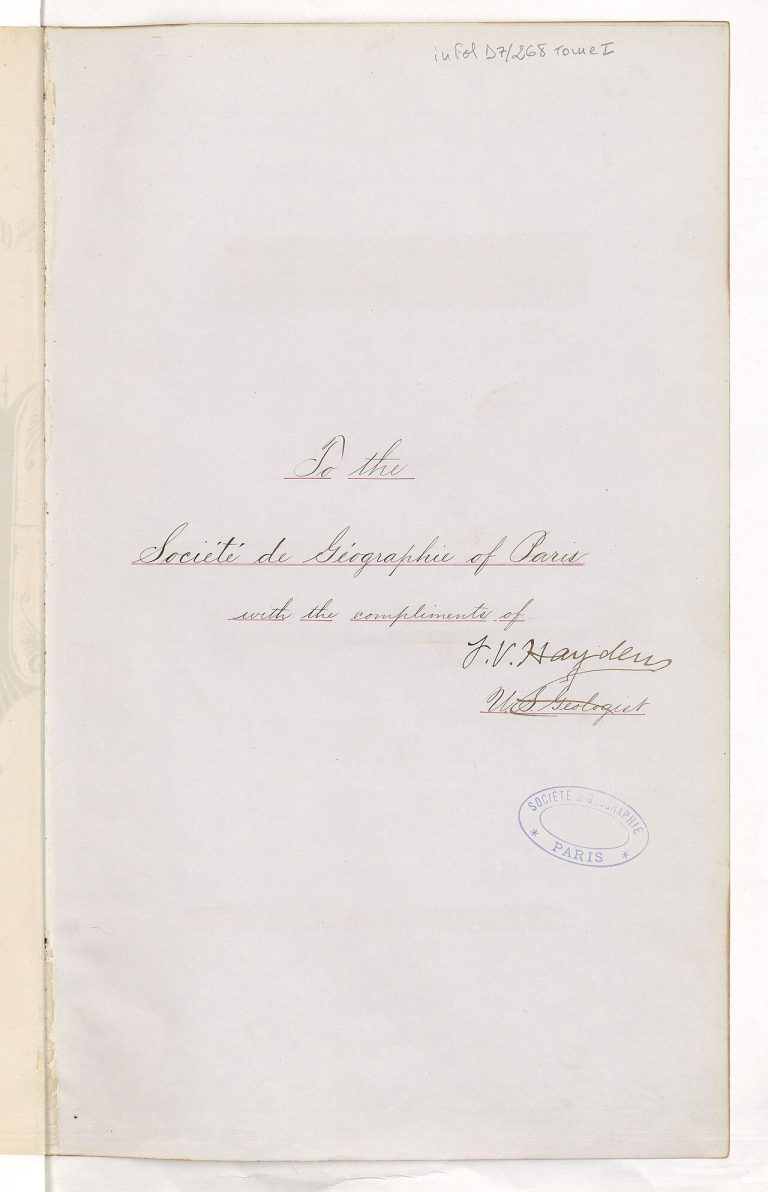 in fol D7/268 Tome I
To the
Société de Géographie of Paris
with the compliments of
F.V. Hayden
U.S. Geologist
SOCIÉTÉ DE GÉOGRAPHIE
* PARIS *